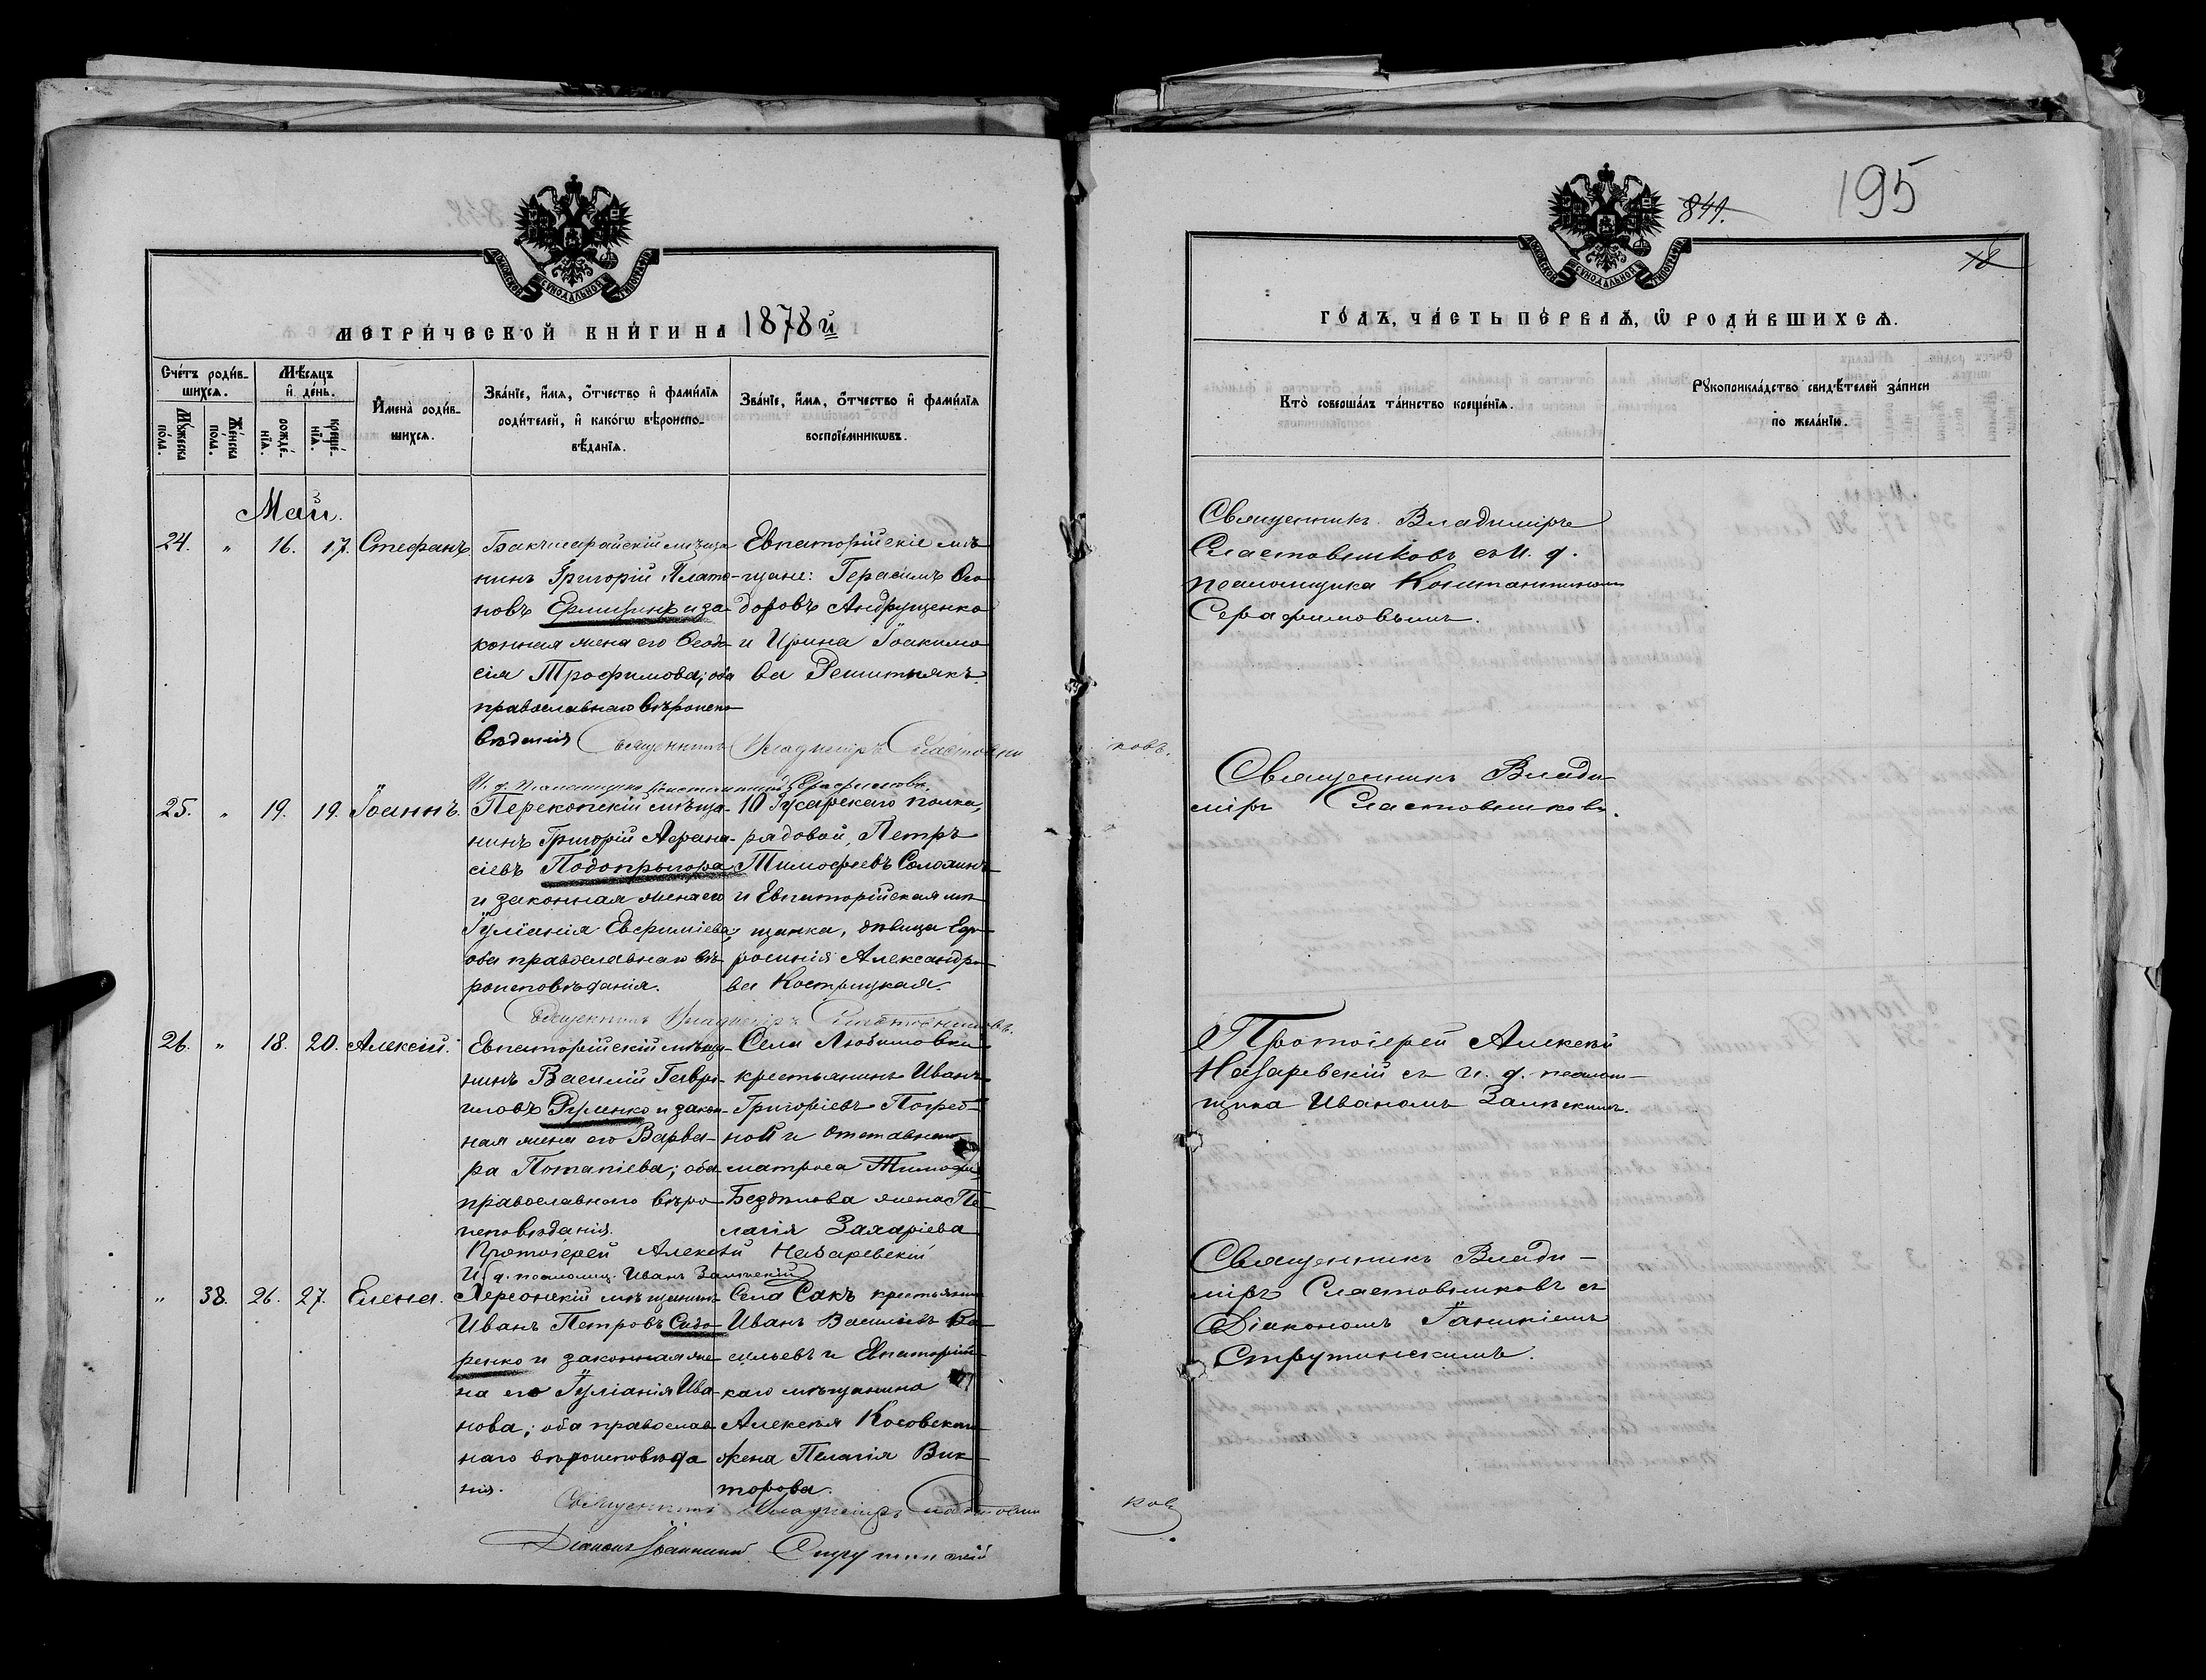 195
841.
18
МОСКОВСКОЙ СѴНОДАЛЬНОЙ ТИПОГРАФІИ
МЕТРИ́ЧЕСКОЙ КНИ́ГИ НА 1878 й
Сче́тъ роди́в-
шихсѧ.
Мꙋ́жеска
пола.
Же́нска
пола.
Мѣ́сѧцъ
и҆ де́нь.
рожде́-
нїѧ.
креще́-
нїѧ.
И҆мена̀ роди́в-
шихсѧ.
Зва́нїе, и҆́мѧ, ѻ҆́тчество и҆ фами́лїѧ
роди́телей, и҆ како́гѡ вѣроиспо-
вѣ́данїѧ.
Зва́нїе, и҆́мѧ, ѻ҆́тчество и҆ фами́лїѧ
воспрїе́мникѡвъ.
Май.
24. " 16. 17. Стефанъ.
Бакчисарайскій мѣща-
нинъ Григорій Плато-
новъ Ермизинъ и за-
конная жена его Ѳеодо-
сія Трофимова; оба
православнаго вѣроиспо-
вѣданія
Евпаторійскіе мѣ-
щане: Герасимъ Ѳео-
доровъ Андрущенко
и Ирина Іоакимо-
ва Решитнякъ.
Священникъ Владиміръ Сластовни
ковъ.
И. д. псаломщика Константинъ Серафимовъ.
25. " 19. 19. Іоаннъ.
Перекопскій мѣща-
нинъ Григорій Афана-
сіевъ Подопрыгора
и законная жена его
Іуліанія Евфиміева;
оба православнаго вѣ-
роисповѣданія.
10 Гусарскаго полка,
рядовой, Петръ
Тимофеевъ Соломинъ
и Евпаторійская мѣ-
щанка, дѣвица Еф-
росинія Александро-
ва Кострицкая.
Священникъ Владиміръ Сластениковъ.
26. " 18. 20. Алексій.
Евпаторійскій мѣща-
нинъ Василій Гаври-
иловъ Руденко и закон-
ная жена его Варва-
ра Потапіева; оба
православнаго вѣро-
исповѣданія.
Села Любимовки
крестьянинъ Иванъ
Григоріевъ Погреб-
ной и отставнаго
матроса Тимофея
Бездѣлова жена Пе-
лагія Захаріева
Протоіерей Алексій Назаревскій
И. д. псаломщ. Иванъ Залѣскій
" 38. 26. 27. Елена.
Херсонскій мѣщанинъ
Иванъ Петровъ Сидо-
ренко и законная же-
на его Іуліанія Ива-
нова; оба православ-
наго вѣроисповѣда
нія.
Села Сакъ крестьянинъ
Иванъ Васильевъ Ва-
сильевъ и Евпаторій-
скаго мѣщанина
Алексѣя Косовскаго
жена Пелагія Вик-
торова.
Священникъ Владиміръ Сластовни
ковъ.
Діаконъ Іоанникій Струтинскій
МОСКОВСКОЙ СѴНОДАЛЬНОЙ ТИПОГРАФІИ
ГО́ДЪ, ЧА́СТЬ ПЕ́РВАѦ, Ѡ҆ РОДИ́ВШИХСѦ.
Кто̀ соверша́лъ та́инство креще́нїѧ.
Рꙋкоприкла́дство свидѣ́телей за́писи
по жела́нїю.
Священникъ Владиміръ
Сластовниковъ съ И. д.
псаломщика Константиномъ
Серафимовымъ.
Священникъ Влади-
міръ Сластовниковъ.
Протоіерей Алексій
Назаревскій съ И. д. псалом-
щика Иваномъ Залѣскимъ.
Священникъ Влади-
міръ Сластовниковъ съ
Діакономъ Іоанникіемъ
Струтинскимъ.